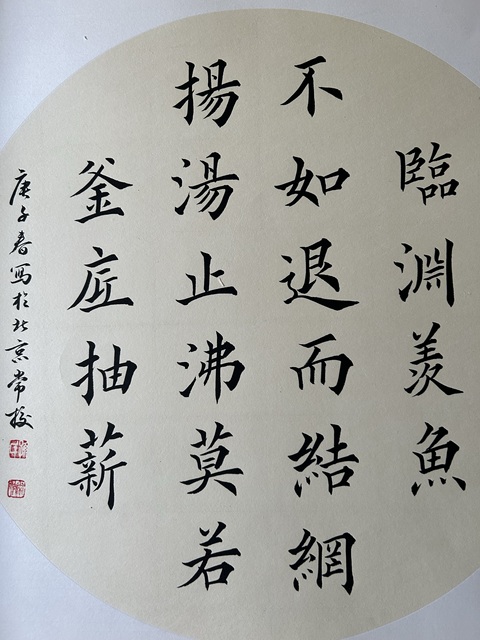 臨淵羨魚
不如退而結網
揚湯止沸莫若
釜底抽薪
庚子春寫於北京常挍